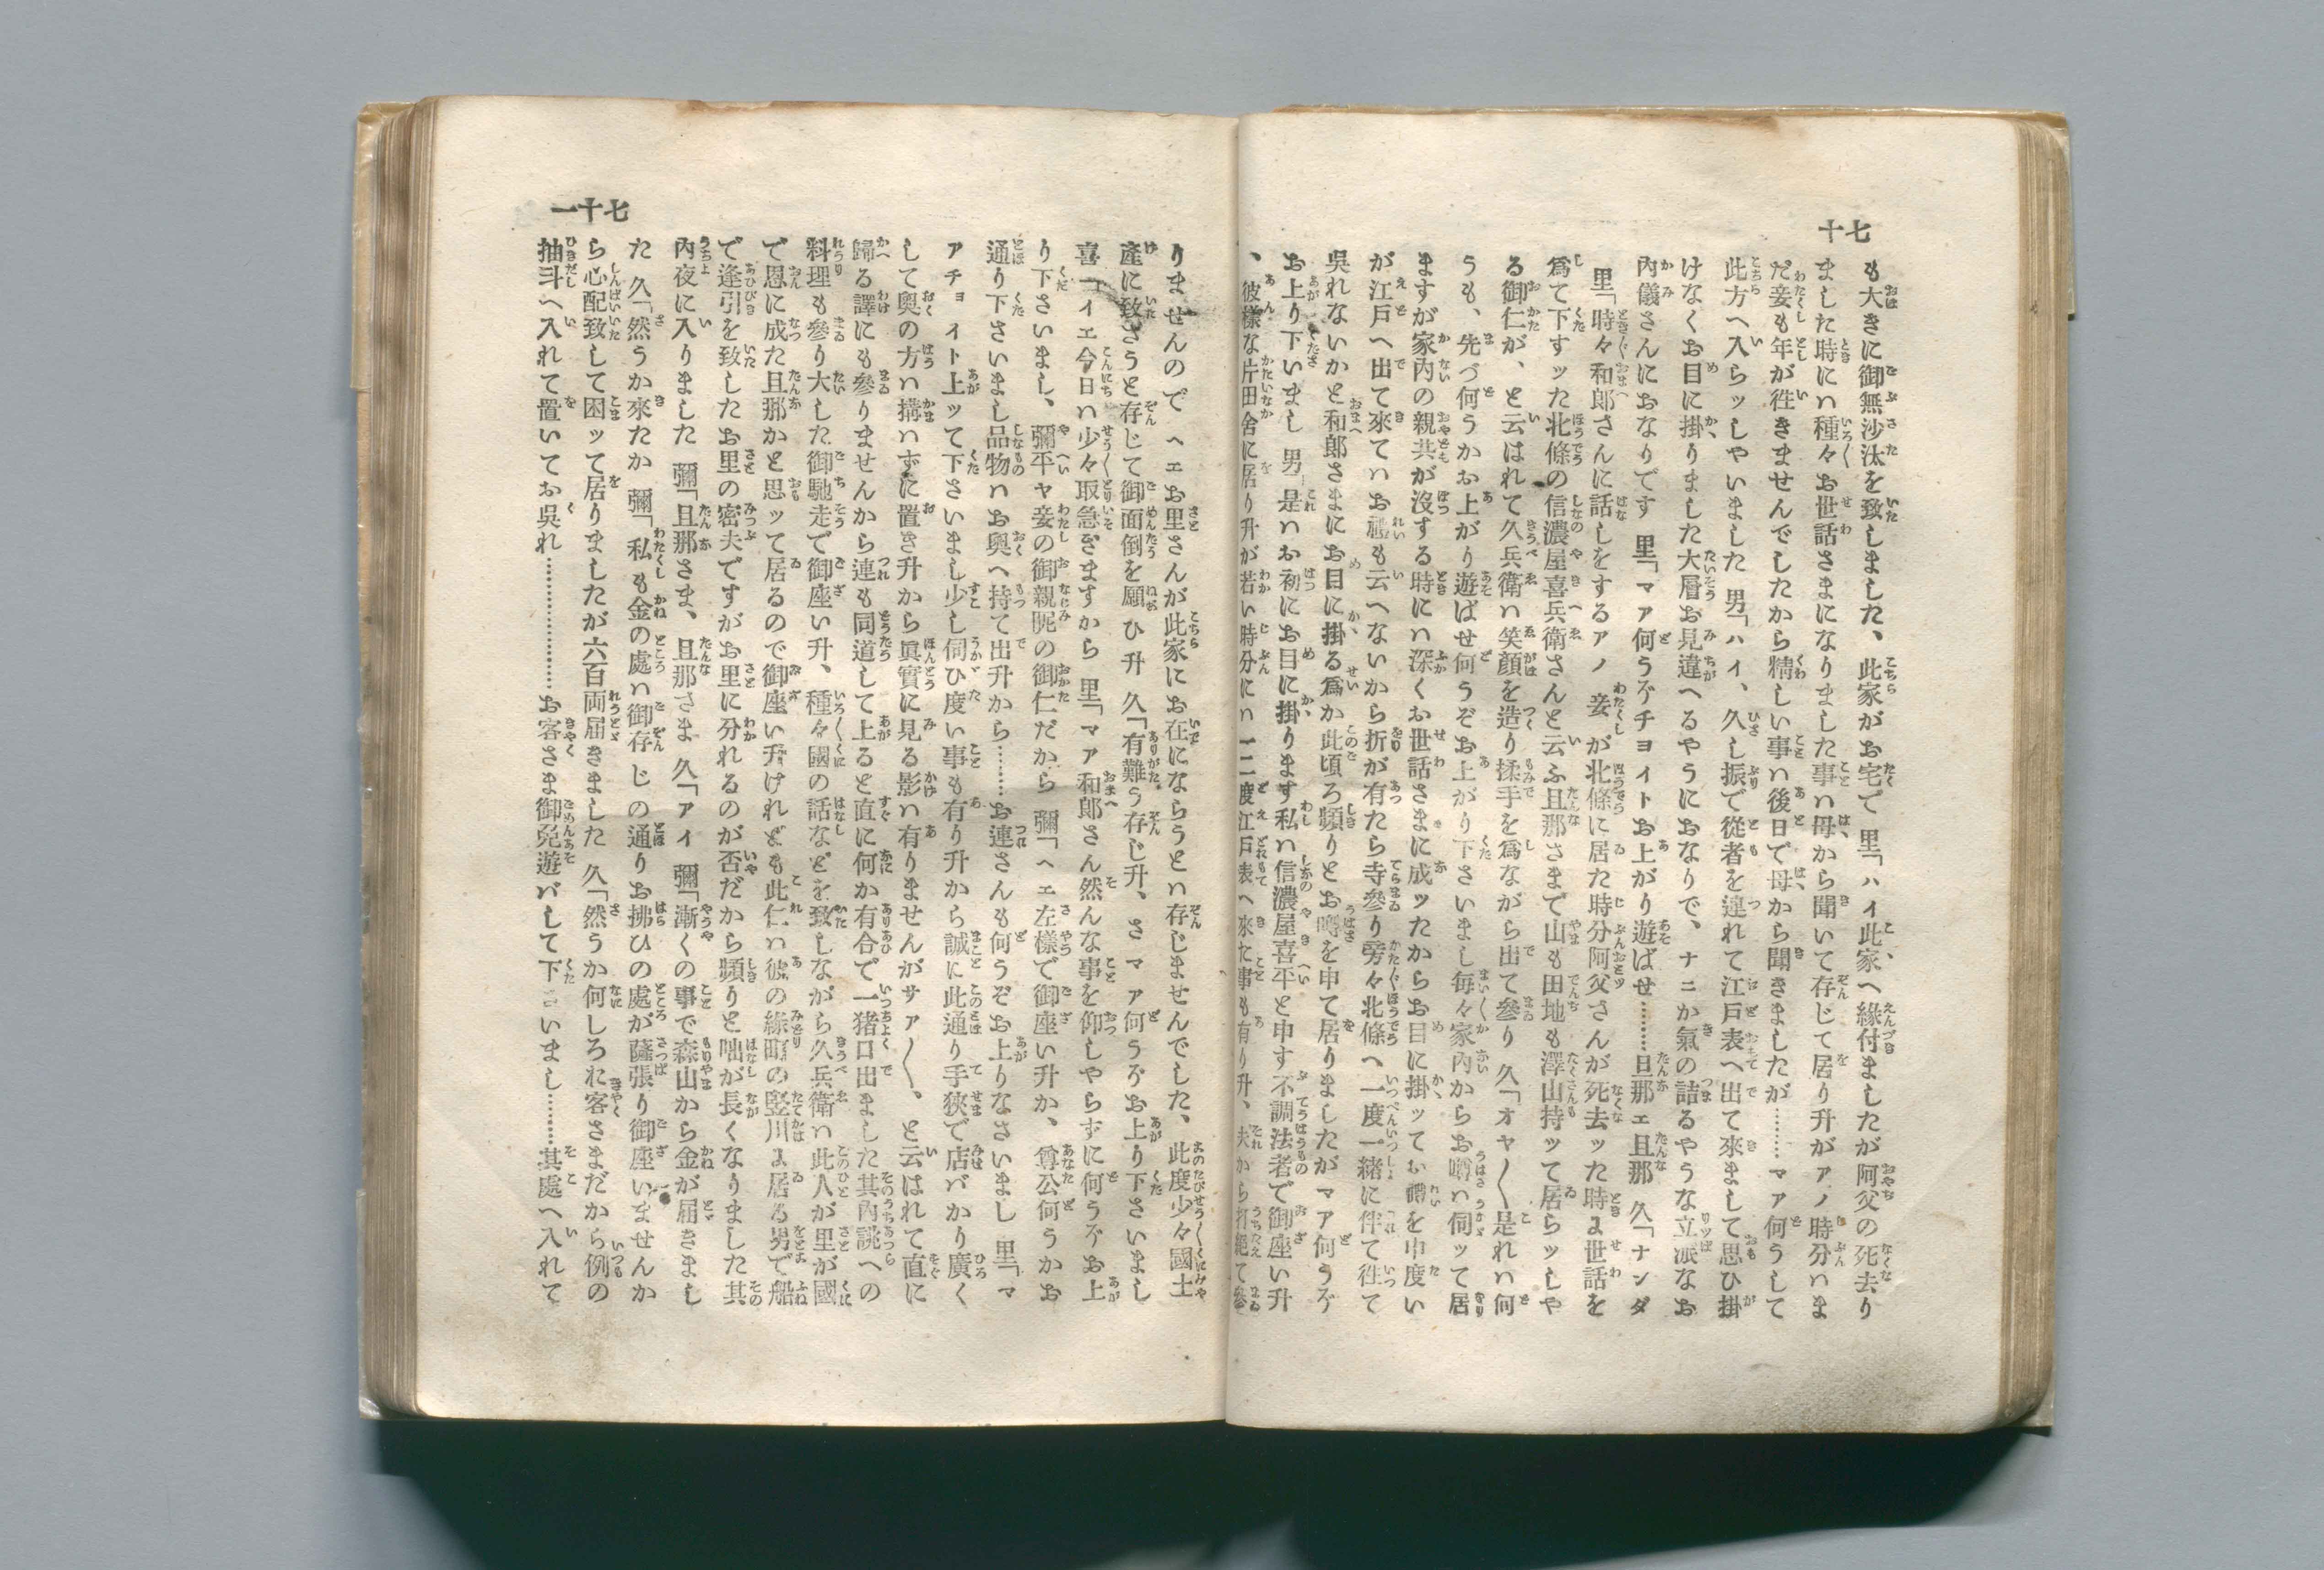 七十
も大きに御無沙汰を致しました、此家がお宅で 里「ハイ此家へ縁付ましたが阿父の死去り
ました時にハ種々お世話さまになりました事ハ母から聞いて存じて居り升がアノ時分ハま
だ妾も年が徃きませんでしたから精しい事ハ後日で母から聞きましたが………マア何うして
此方へ入らッしやいました 男「ハイ、久し振で從者を連れて江戸表へ出て來まして思ひ掛
けなくお目に掛りました大層お見違へるやうにおなりで、ナニか氣の詰るやうな立派なお
內儀さんにおなりです 里「マア何うぞチヨイトお上がり遊ばせ……旦那ェ旦那 久「ナンダ
里「時々和郎さんに話しをするアノ妾が北條に居た時分阿父さんが死去ッた時よ世話を
爲て下すッた北條の信濃屋喜兵衛さんと云ふ旦那さまで山も田地も澤山持ッて居らッしや
る御仁が、と云はれて久兵衛ハ笑顔を造り揉手を爲ながら出て參り 久「オヤ〱是れハ何
うも、先づ何うかお上がり遊ばせ何うぞお上がり下さいまし毎々家內からお噂ハ伺ッて居
ますが家內の親共が沒する時にハ深くお世話さまに成ッたからお目に掛ッてお禮を申度い
が江戸へ出て來てハお禮も云へないから折が有たら寺參り旁々北條へ一度一緒に伴て徃て
呉れないかと和郎さまにお目に掛る爲か此頃ろ頻りとお噂を申て居りましたがマア何うぞ
お上り下いまし 男「是ハお初にお目に掛ります私ハ信濃屋喜平と申す不調法者で御座い升
、彼樣な片田舍に居り升が若い時分にハ一二度江戸表へ來た事も有り升、夫から打絕て參
七十一
りませんので ヘェお里さんが此家にお在にならうとハ存じませんでした、此度少々國土
產に致さうと存じて御面倒を願ひ升 久「有難う存じ升、さマア何うぞお上り下さいまし
喜「イエ今日ハ少々取急ぎますから 里「マア和郎さん然んな事を仰しやらずに何うぞお上
り下さいまし、彌平ヤ妾の御親昵の御仁だから 彌「ヘェ左樣で御座い升か、尊公何うかお
通り下さいまし品物ハお奥へ持て出升から……お連さんも何うぞお上りなさいまし 里「マ
アチョイト上ッて下さいまし少し伺ひ度い事も有り升から誠に此通り手狹で店バかり廣く
して奥の方ハ搆ハずに置き升から眞實に見る影ハ有りませんがサア〱、と云はれて直に
歸る譯にも參りませんから連も同道して上ると直に何か有合で一猪口出ました其內誂への
料理も參り大した御馳走で御座い升、種々國の話などを致しながら久兵衛ハ此人が里が國
で恩に成た旦那かと思ッて居るので御座い升けれども此仁ハ彼の綠町の竪川よ居る男で船
で逢引を致したお里の密夫ですがお里に分れるのが否だから頻りと咄が長くなりました其
內夜に入りました 彌「旦那さま、旦那さま 久「アイ 彌「漸くの事で森山から金が届きまし
た 久「然うか來たか 彌「私も金の處ハ御存じの通りお拂ひの處が薩張り御座いませんか
ら心配致して困ッて居りましたが六百両届きました 久「然うか何しろお客さまだから例の
抽斗へ入れて置いてお呉れ……………お客さま御免遊バして下さいまし………其處へ入れて